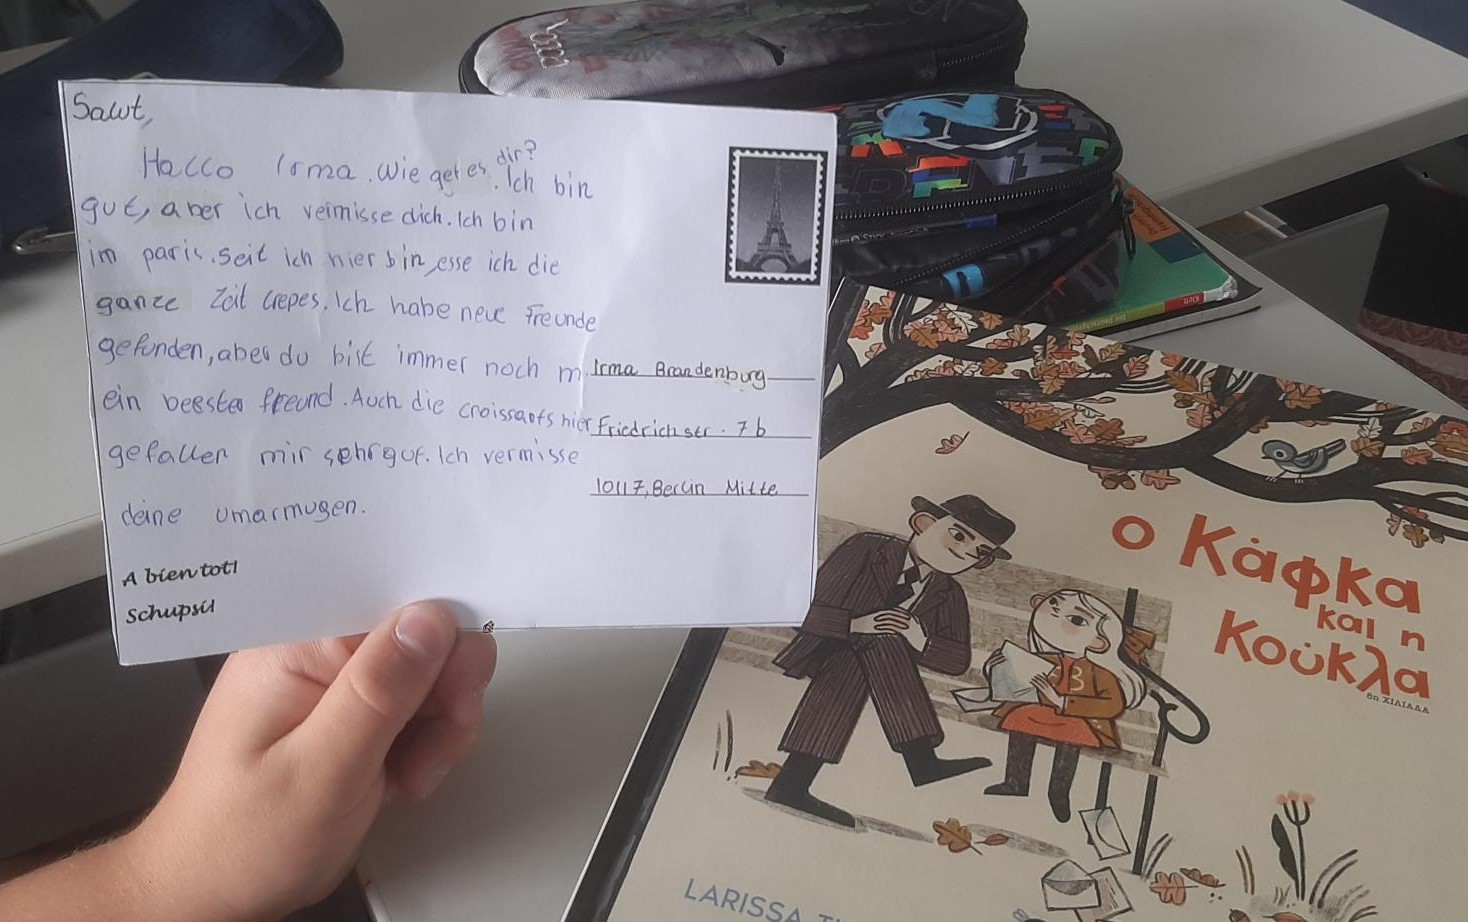 Salut,
Hallo Irma. Wie get es dir? Ich bin
gut, aber ich vermisse dich. Ich bin
im paris. Seit ich hier bin, esse ich die
ganze Zeit Crepes. Ich habe neue Freunde
gefunden, aber du bist immer noch m
ein bester freund. Auch die croissants hier
gefallen mir sehr gut. Ich vermisse
deine umarmugen.
A bientot!
Schupsi!
Irma Brandenburg
Friedrichstr. 7b
10117, Berlin Mitte
Ο Κάφκα
και η
Κούκλα
8η ΧΙΛΙΑΔΑ
LARISSA
Klett